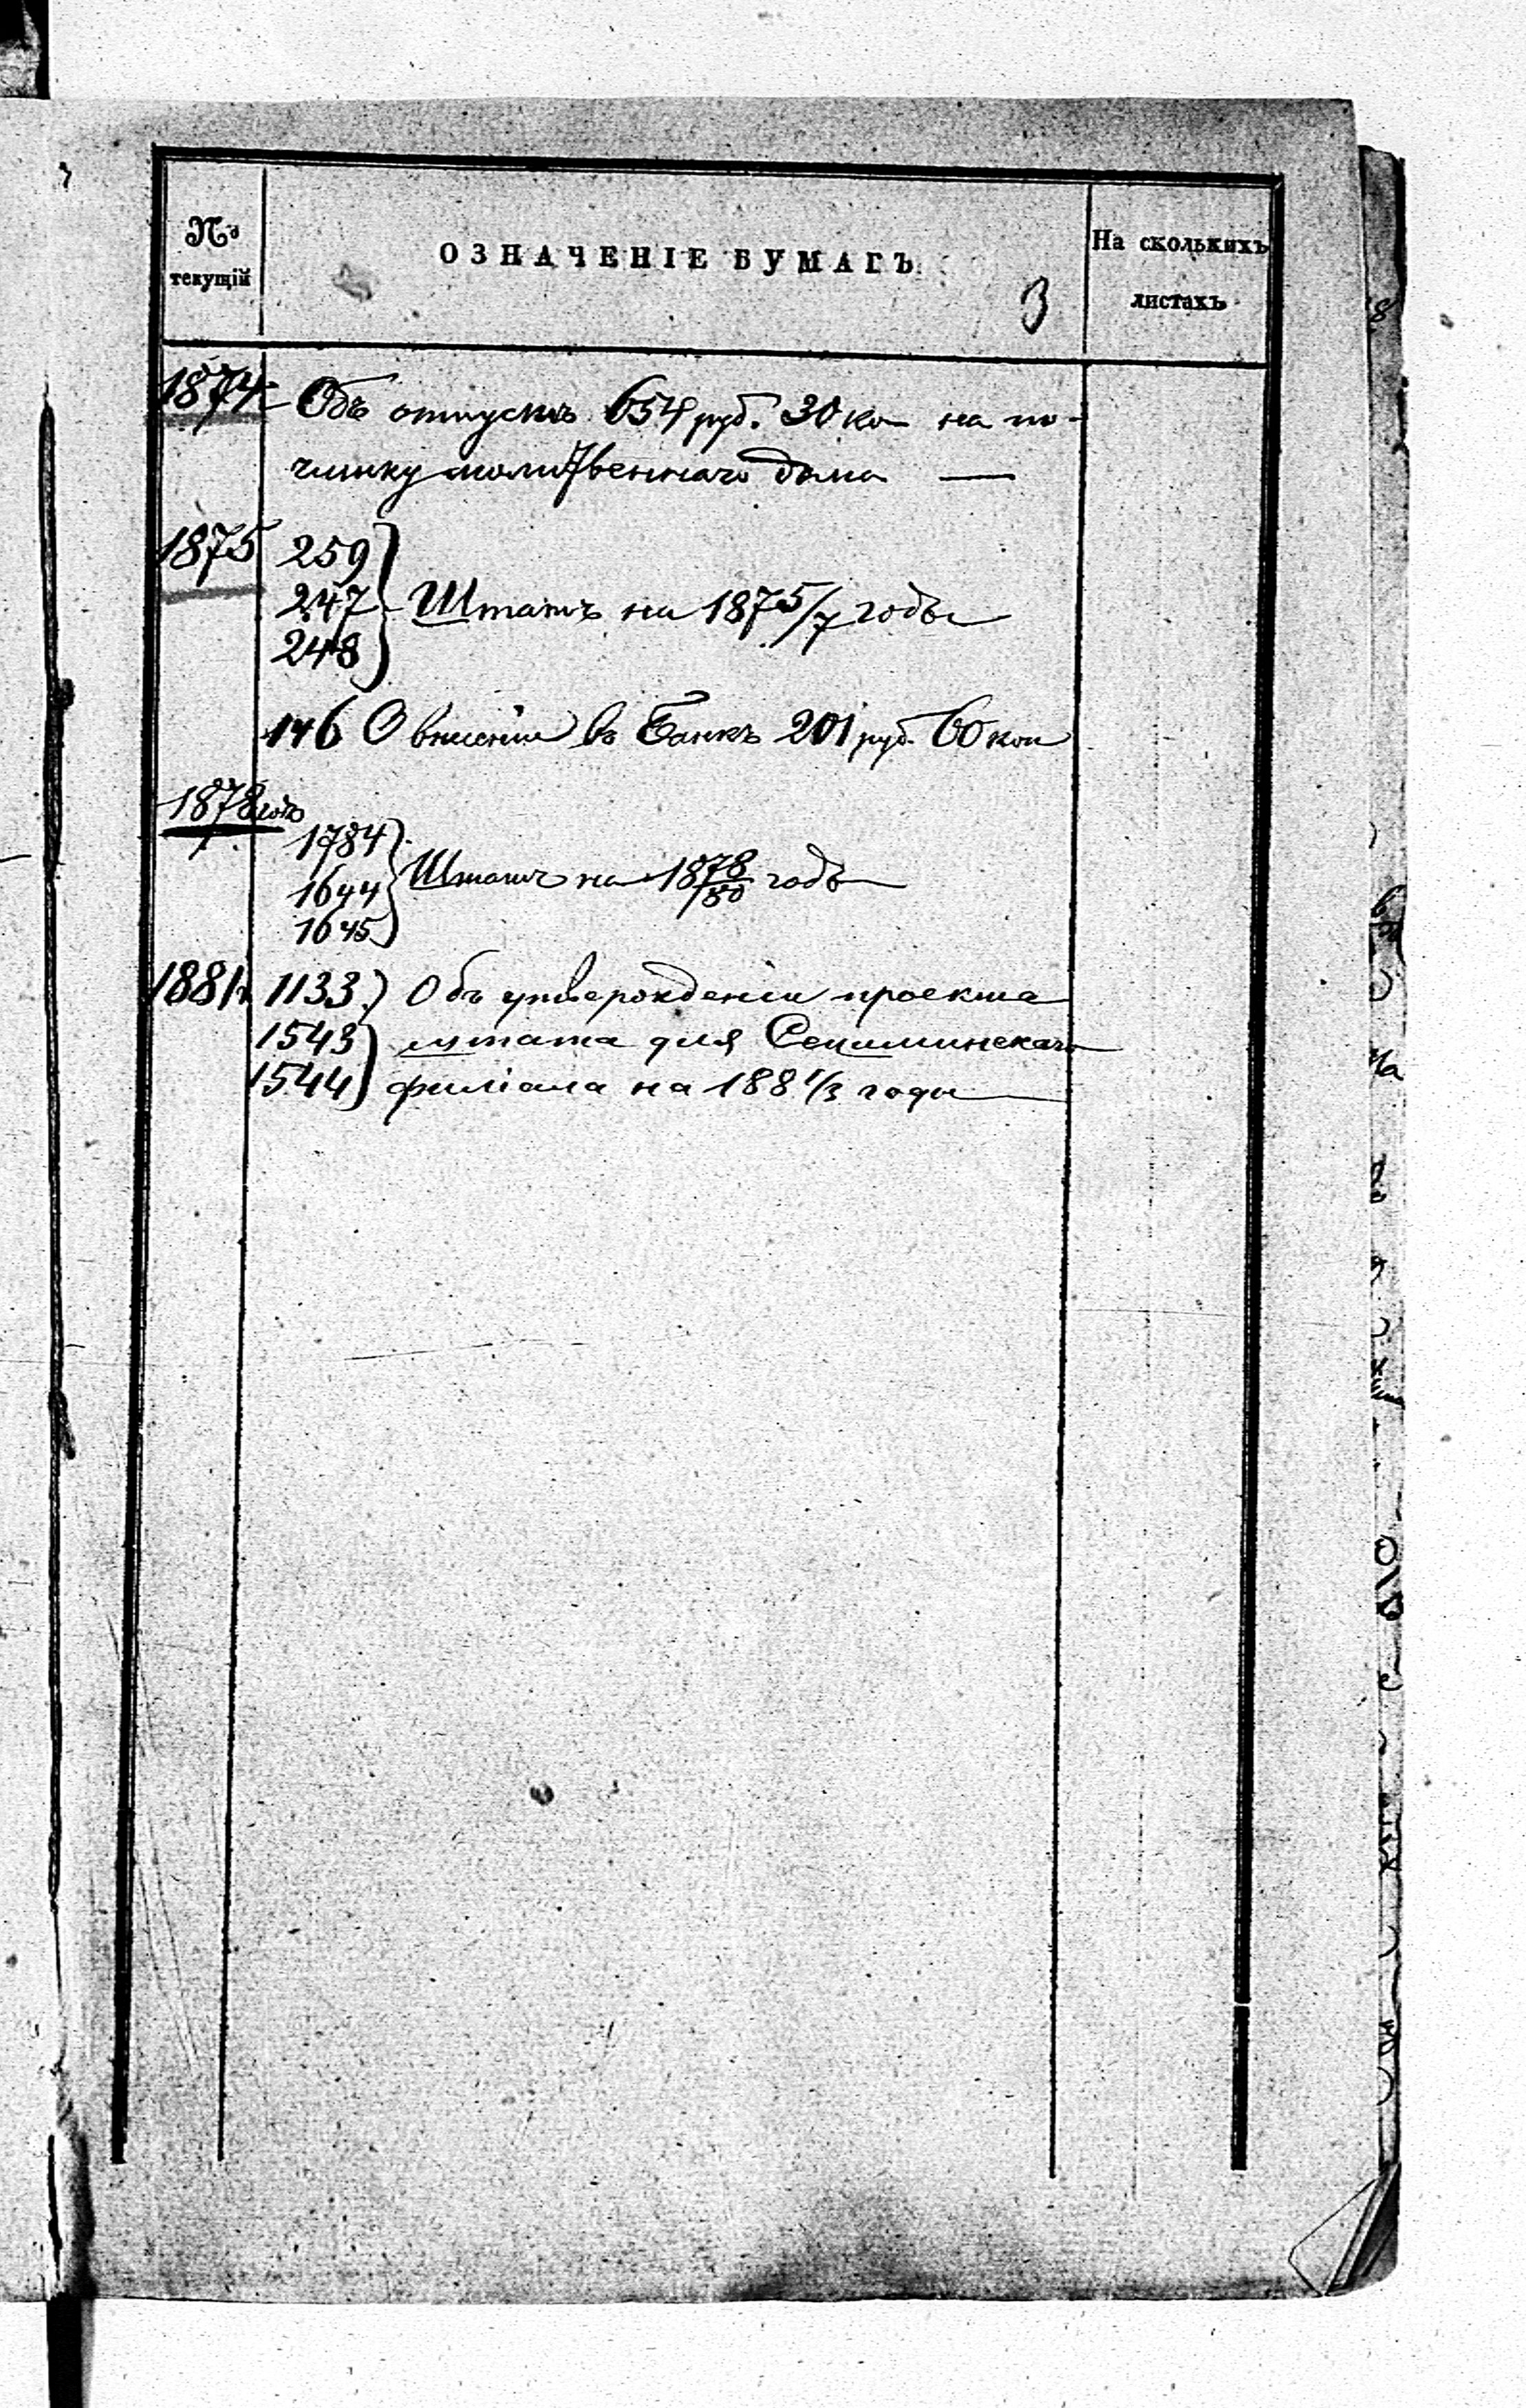 № текущій
ОЗНАЧЕНІЕ БУМАГЪ.
На сколькихъ листахъ
3
1874 Объ отпускѣ 654 руб. 30 ко на по-
чинку молитвеннаго дома —
1875 259
247 Штатъ на 1875/7 годы
248
146 О внесеніи въ Банкъ 201 руб. 60 коп
1878
1784
1644 Штатъ на 1878/80 годъ
1645
1881 1133 Объ утвержденіи проекта
1543 штата для
1544 филіала на 1881/3 годы